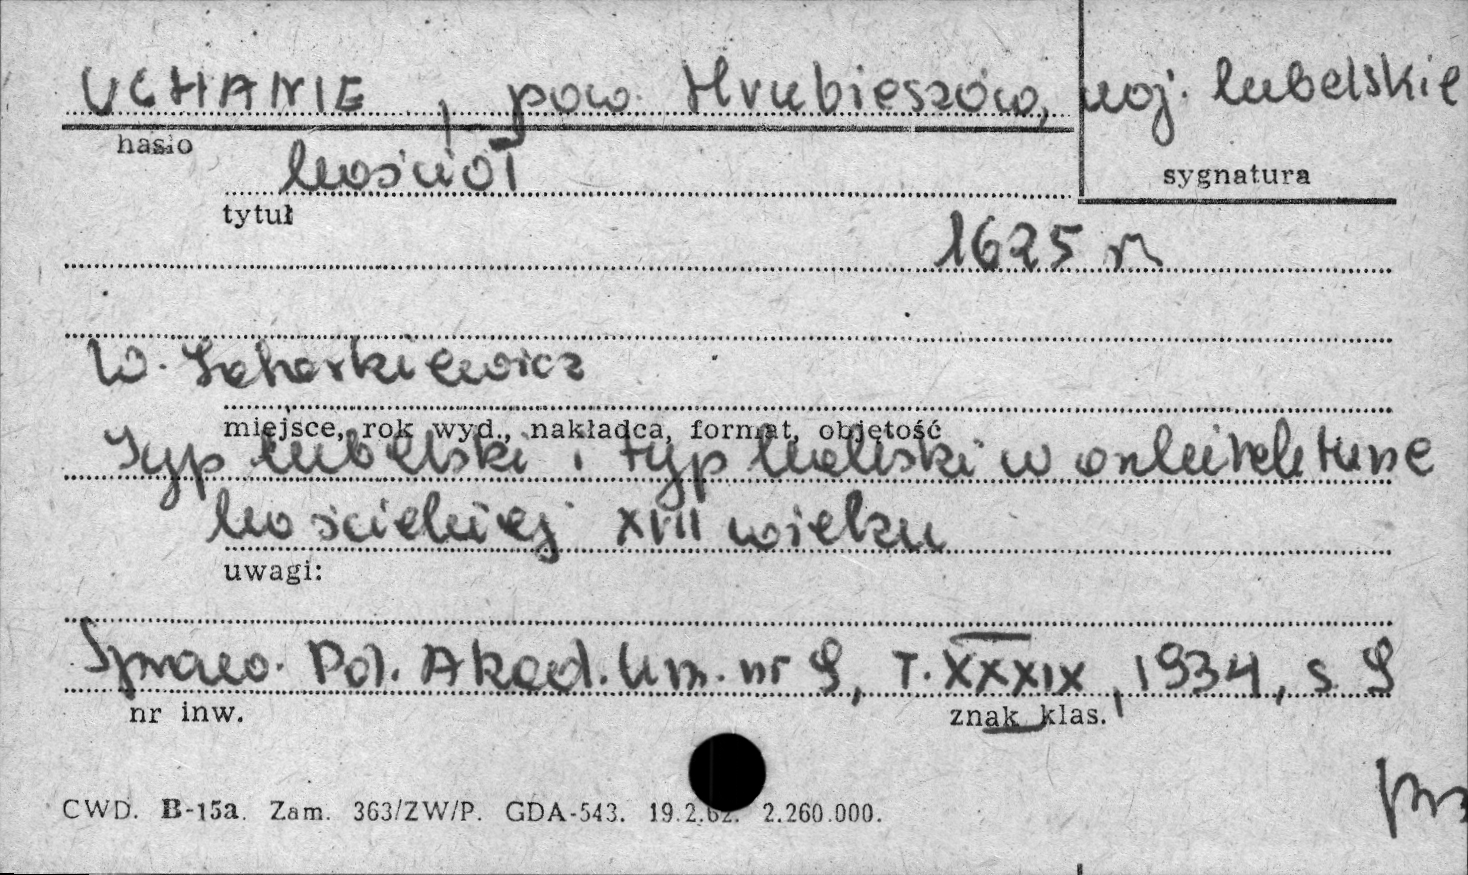 UCHANIE, pow. Hrubieszów, woj. lubelskie
hasło
kościół
sygnatura
tytuł
1625 r.
W. Zaharkiewicz
miejsce, rok wyd., nakładca, format, objętość
Typ lubelski i typ kaliski w architekturze
kościelnej XVII wieku
uwagi:
Spraw. Pol. Akad. Um. nr 9, T. XXXIX, 1934, s. 9
nr inw.
znak klas.
CWD. B-15a. Zam. 363/ZW/P. GDA-543. 19.2.62. 2.260.000.